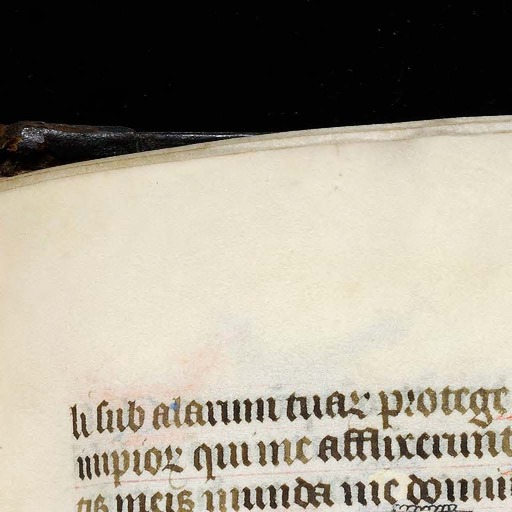 li sub alarum tuaꝝ protege
impioꝝ qui me afflixerunt
tis meis munda me domin